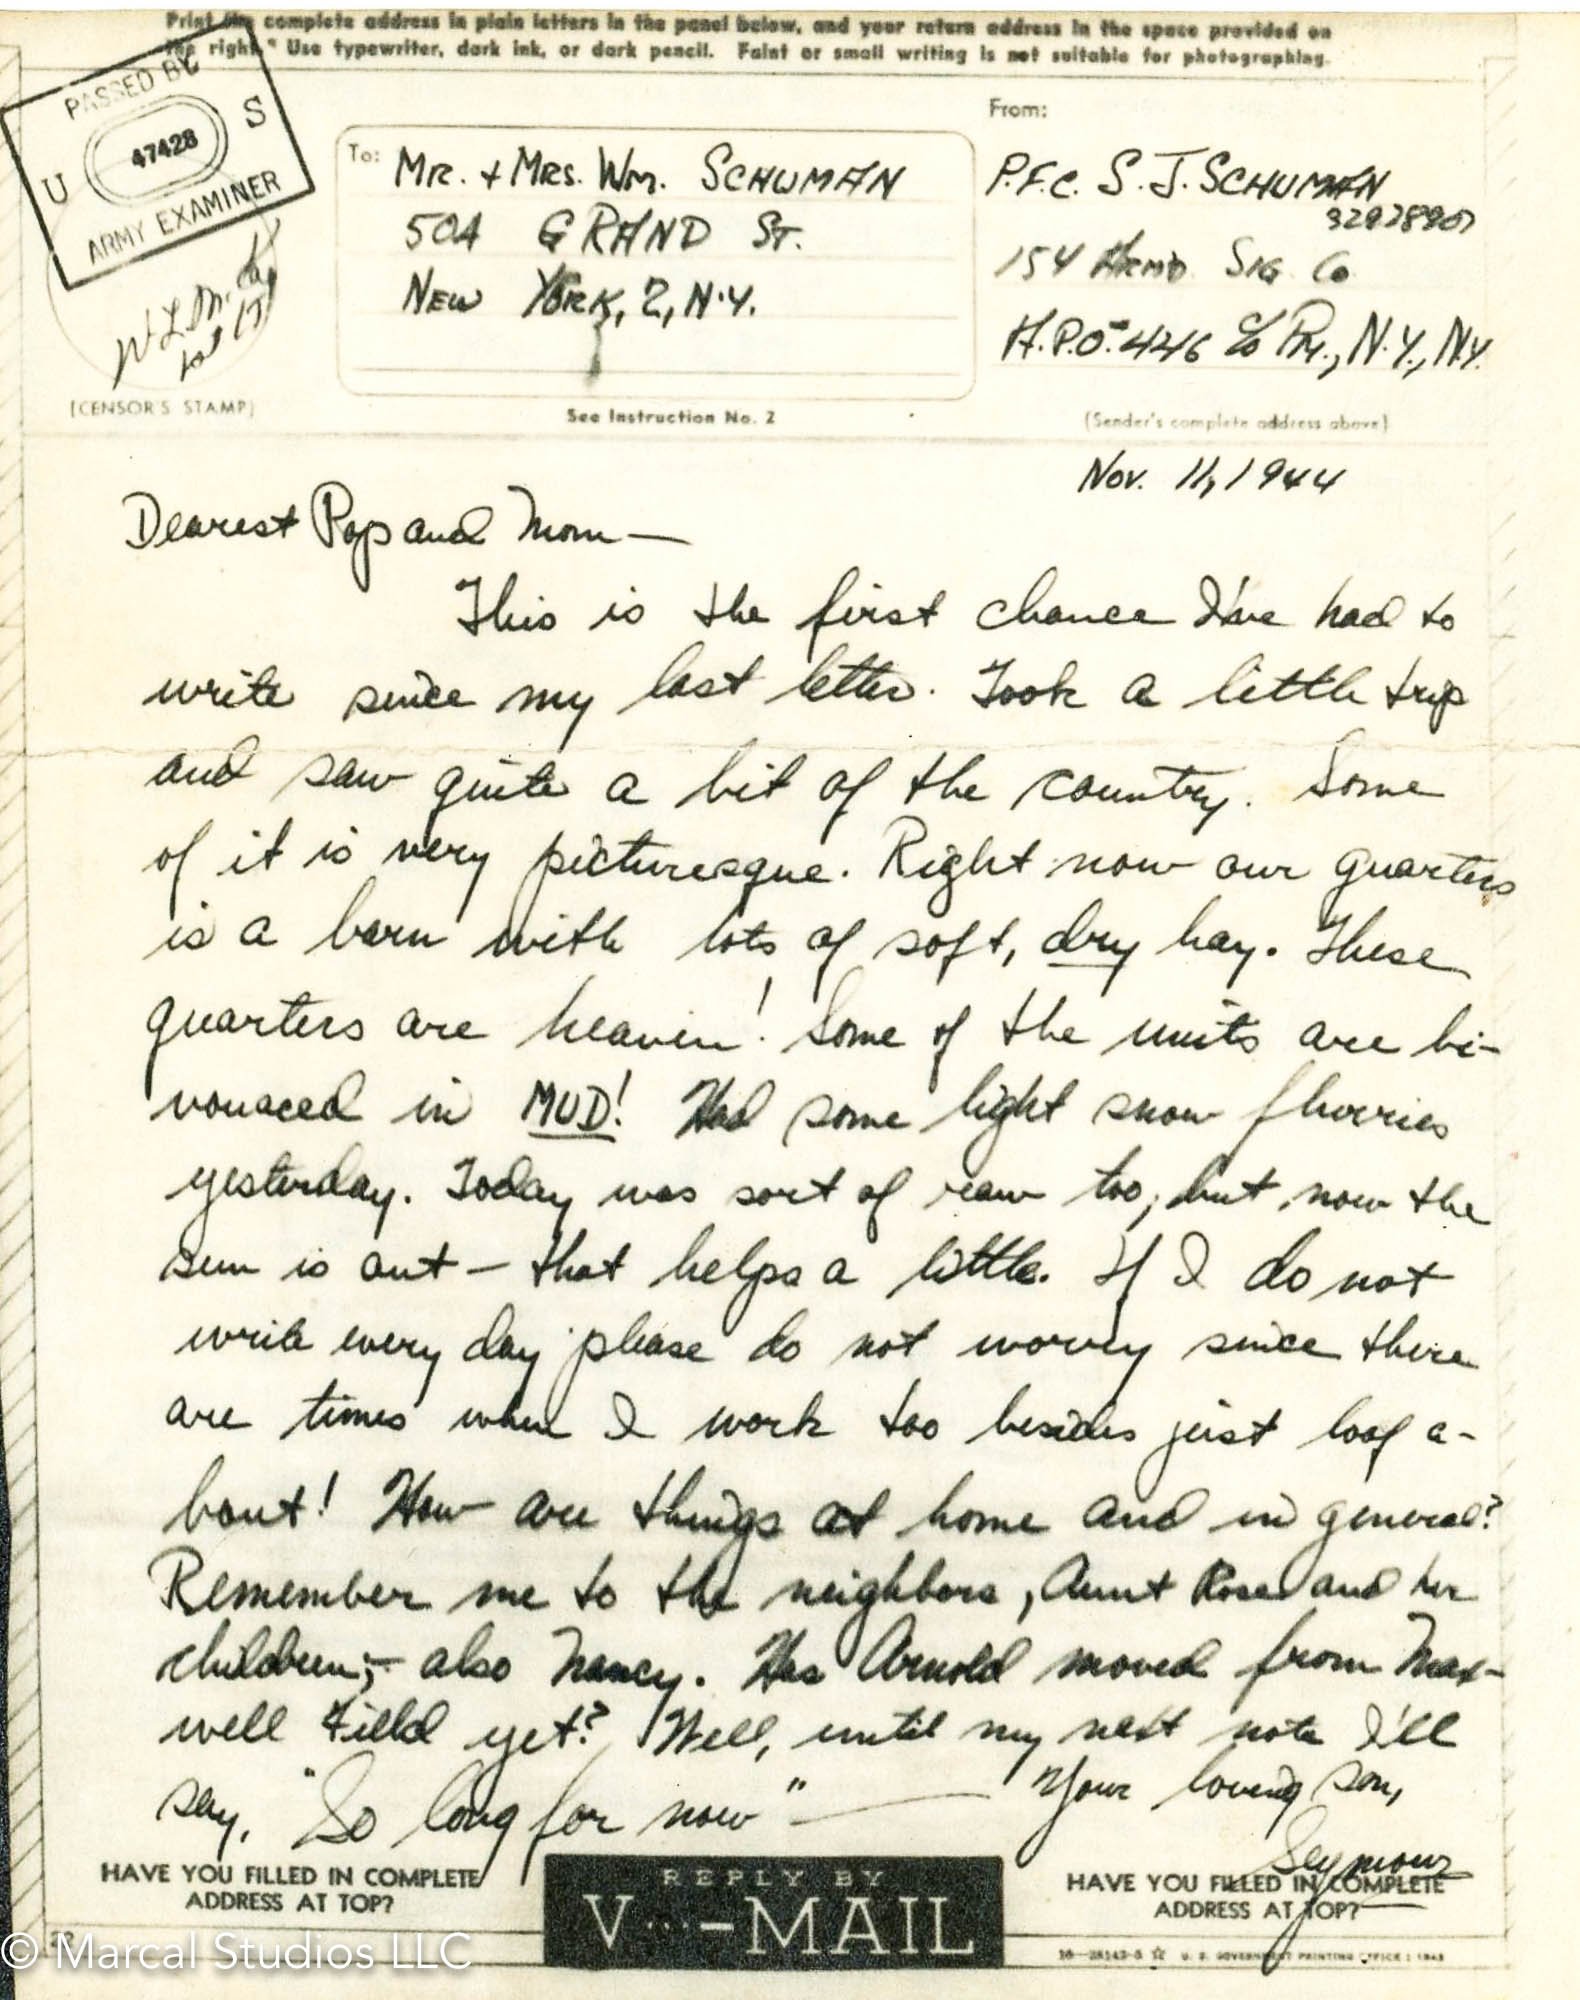 Print the complete address in plain letters in the panel below, and your return address in the space provided on
the right. Use typewriter, dark ink, or dark pencil. Faint or small writing is not suitable for photographing.
PASSED BY
U 47428 S
ARMY EXAMINER
(CENSOR'S STAMP)
To: MR. + MRS. WM. SCHUMAN
504 GRAND ST.
NEW YORK, 2, N.Y.
See Instruction No. 2
From:
P.F.C. S. J. SCHUMAN
32928907
154 ARMD SIG CO
A.P.O. 446 c/o PM., N.Y., N.Y.
(Sender's complete address above)
Nov. 11, 1944
Dearest Pop and Mom—
This is the first chance I've had to
write since my last letter. Took a little trip
and saw quite a bit of the country. Some
of it is very picturesque. Right now our quarters
is a barn with lots of soft, dry hay. These
quarters are heaven! Some of the units are bi-
vouaced in MUD! Had some light snow flurries
yesterday. Today was sort of raw too, but now the
sun is out — that helps a little. If I do not
write every day please do not worry since there
are times when I work too besides just loaf a-
bout! How are things at home and in general?
Remember me to the neighbors, Aunt Rose and her
children;- also Nancy. Has Arnold moved from Max-
well Field yet? Well, until my next note I'll
say, "So long for now" — Your loving son,
Seymour
HAVE YOU FILLED IN COMPLETE
ADDRESS AT TOP?
REPLY BY
V···—MAIL
HAVE YOU FILLED IN COMPLETE
ADDRESS AT TOP?
16—28143-5 ☆ U. S. GOVERNMENT PRINTING OFFICE : 1943
© Marcal Studios LLC